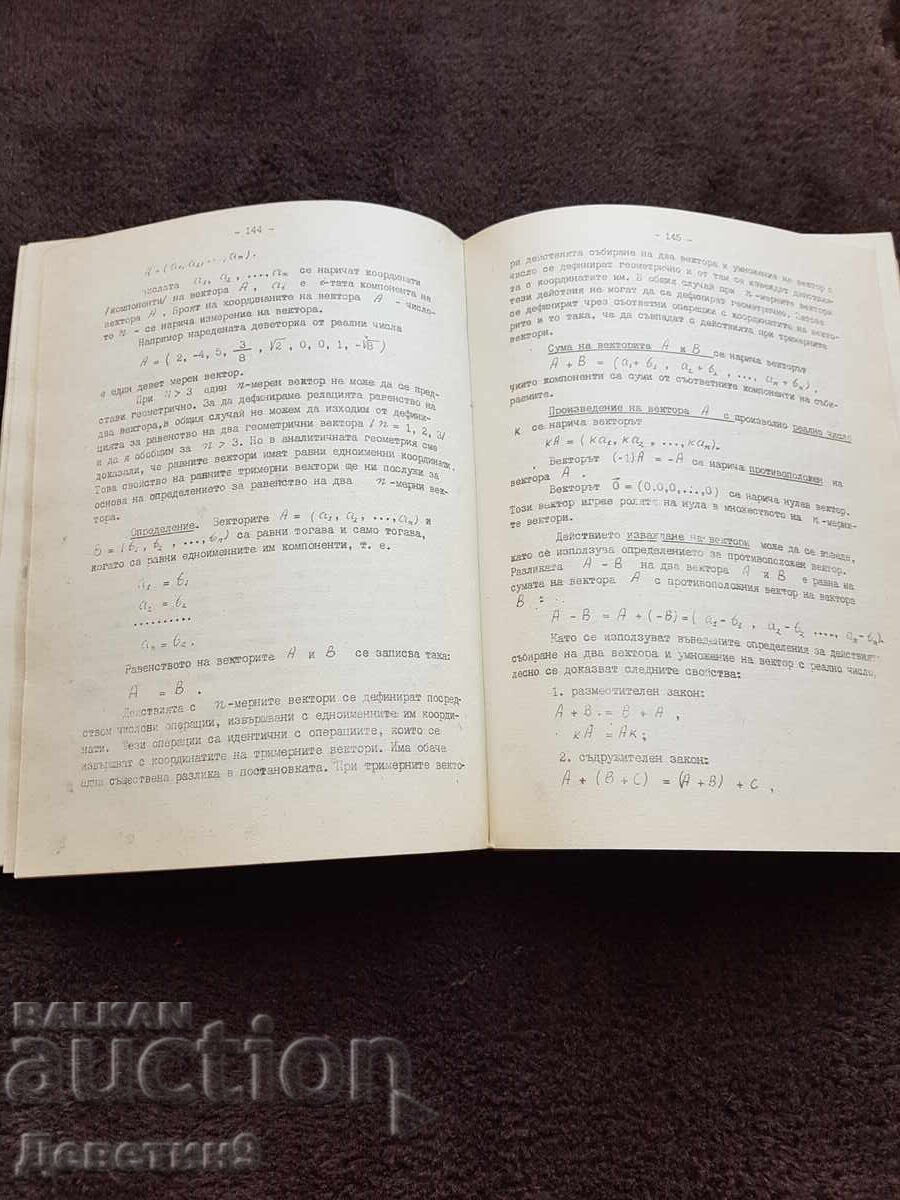 - 144 -
A = (a₁, a₂, ..., aₙ).
Числата a₁, a₂, ...., aₙ се наричат координати
/компоненти/ на вектора A, a₁ е -тата компонента на
вектора A. Броят на координатите на вектора A - число-
то n - се нарича измерение на вектора.
Например наредената деветорка от реални числа
A = ( 2, -4, 5, 3/8 , √2 , 0, 0, 1, -√8 )
е един девет мерен вектор.
При n > 3 един n-мерен вектор не може да се пред-
стави геометрично. За да дефинираме релацията равенство на
два вектора, в общия случай не можем да изходим от дефини-
цията за равенство на два геометрични вектора / n = 1, 2, 3/
и да я обобщим за n > 3. Но в аналитичната геометрия сме
доказали, че равните вектори имат равни едноименни координати.
Това свойство на равните тримерни вектори ще ни послужи за
основа на определението за равенство на два n-мерни век-
тора.
Определение. Векторите A = (a₁, a₂, ...,aₙ) и
B = (b₁, b₂, ...,bₙ) са равни тогава и само тогава,
когато са равни едноименните им компоненти, т. е.
a₁ = b₁
a₂ = b₂
..........
aₙ = bₙ.
Равенството на векторите A и B се записва така:
A = B .
Действията с n-мерните вектори се дефинират посред-
ством числови операции, извършвани с едноименните им коорди-
нати. Тези операции са идентични с операциите, които се
извършват с координатите на тримерните вектори. Има обаче
една съществена разлика в постановката. При тримерните векто-
- 145 -
ри действията събиране на два вектора и умножение на вектор с
число се дефинират геометрично и от там се извеждат действия-
та с координатите им. В общия случай при n-мерните вектори
тези действия не могат да се дефинират геометрично. Затова
се дефинират чрез съответни операции с координатите на векто-
рите и то така, че да съвпадат с действията при тримерните
вектори.
Сума на векторите A и B се нарича векторът
A + B = (a₁+b₁ , a₂+b₂ , ..., aₙ+bₙ),
чиито компоненти са суми от съответните компоненти на съби-
раемите.
Произведение на вектора A с произволно реално число
K се нарича векторът
кA = (кa₁, кa₂ , ...,кaₙ).
Векторът (-1)A = -A се нарича противоположен на
вектора A .
Векторът 0̄ = (0,0,0,...,0) се нарича нулев вектор.
Този вектор играе ролята на нула в множеството на n-мерни-
те вектори.
Действието изваждане на вектори може да се въведе,
като се използува определението за противоположен вектор.
Разликата A - B на два вектора A и B е равна на
сумата на вектора A с противоположния вектор на вектора
B :
A - B = A + (-B) = ( a₁-b₁ , a₂-b₂ ...., aₙ-bₙ).
Като се използуват въведените определения за действията
събиране на два вектора и умножение на вектор с реално число,
лесно се доказват следните свойства:
1. разместителен закон:
A + B = B + A ,
кA = Aк;
2. съдружителен закон:
A + (B + C) = (A + B) + C ,
BALKAN
auction
Деветин9